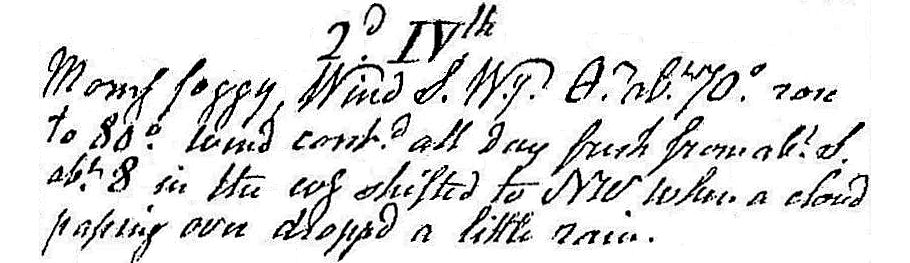 2d. IVth
Morng foggy, Wind S. W.
to 80°. wind contd. all Day fresh from abt. S.
abt. 8 in the evg shifted to NW when a cloud
passing over dropp'd a little rain.